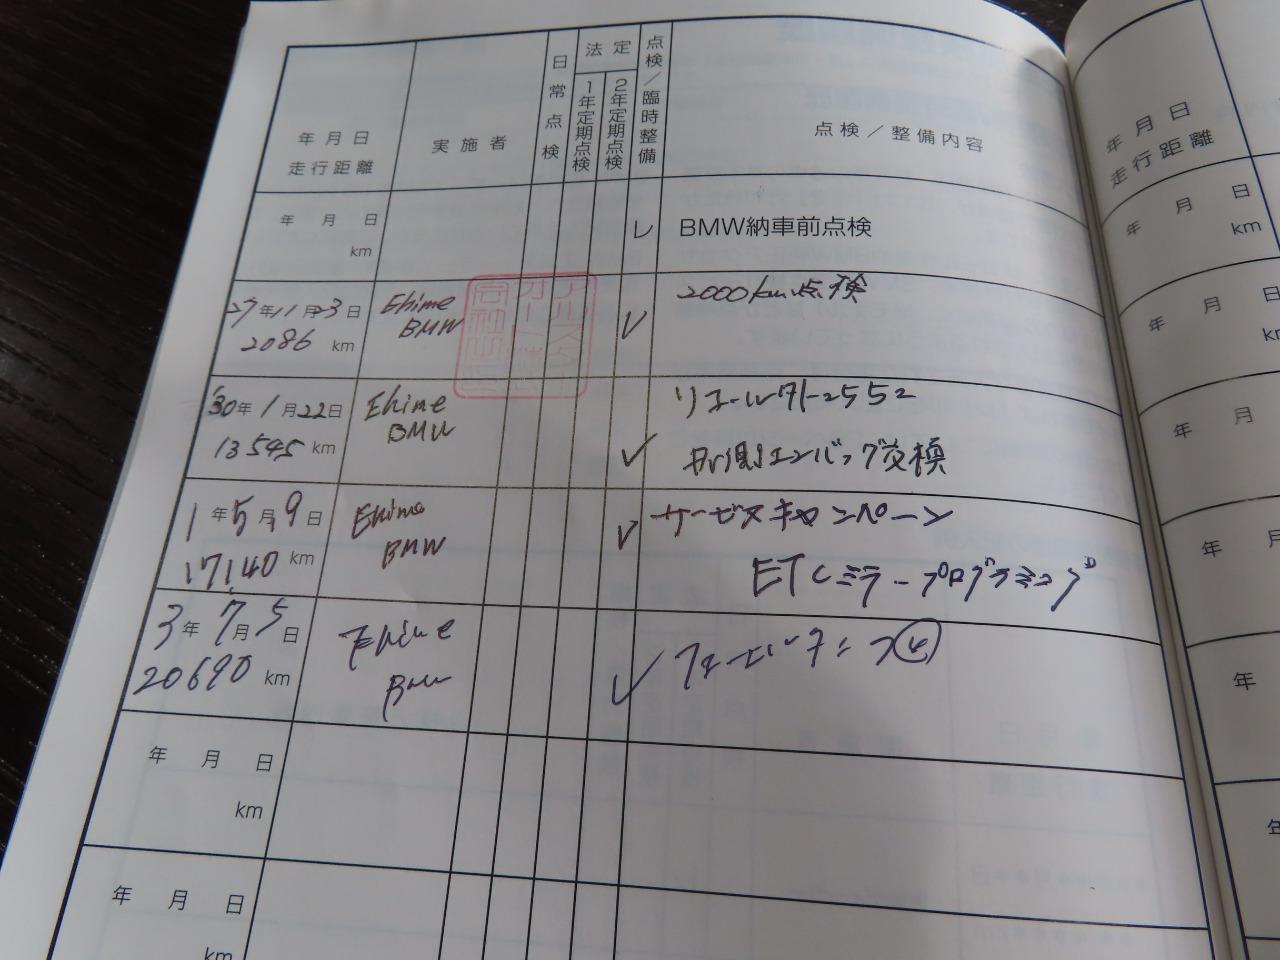 年月日
走行距離
実施者
日常点検
法定
1年定期点検
2年定期点検
点検/臨時整備
点検/整備内容
年 月 日
km
レ
BMW納車前点検
27年11月23日
2086 km
Ehime
BMW
レ
2000km点検
30年1月22日
13545 km
Ehime
BMW
レ
リコール外-2552
エンバッグ交換
1年5月9日
17,140 km
Ehime
BMW
レ
サービスキャンペーン
ETCミラープログラミング
3年7月5日
20690 km
Ehime
BMW
レ
年 月 日
km
年 月 日
km
年月日
走行距離
年 月 日
km
年 月 日
年 月
年 月
年
年